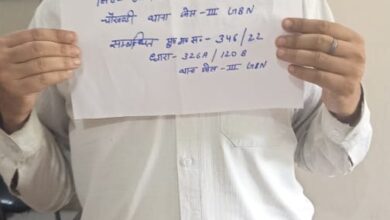 चौखड़ी थाना सेस-III GBN
सम्बन्धित मु० अ० स०- 346/22
धारा- 326A / 120B
थाना सेस-III GBN